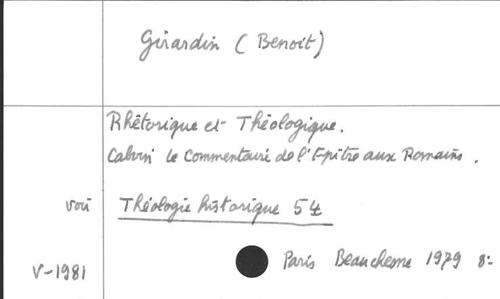 Girardin (Benoit)
Rhétorique et Théologique.
Calvin le Commentaire de l'Epître aux Romains.
voir Théologie historique 54
V-1981
Paris Beauchesne 1979 8-